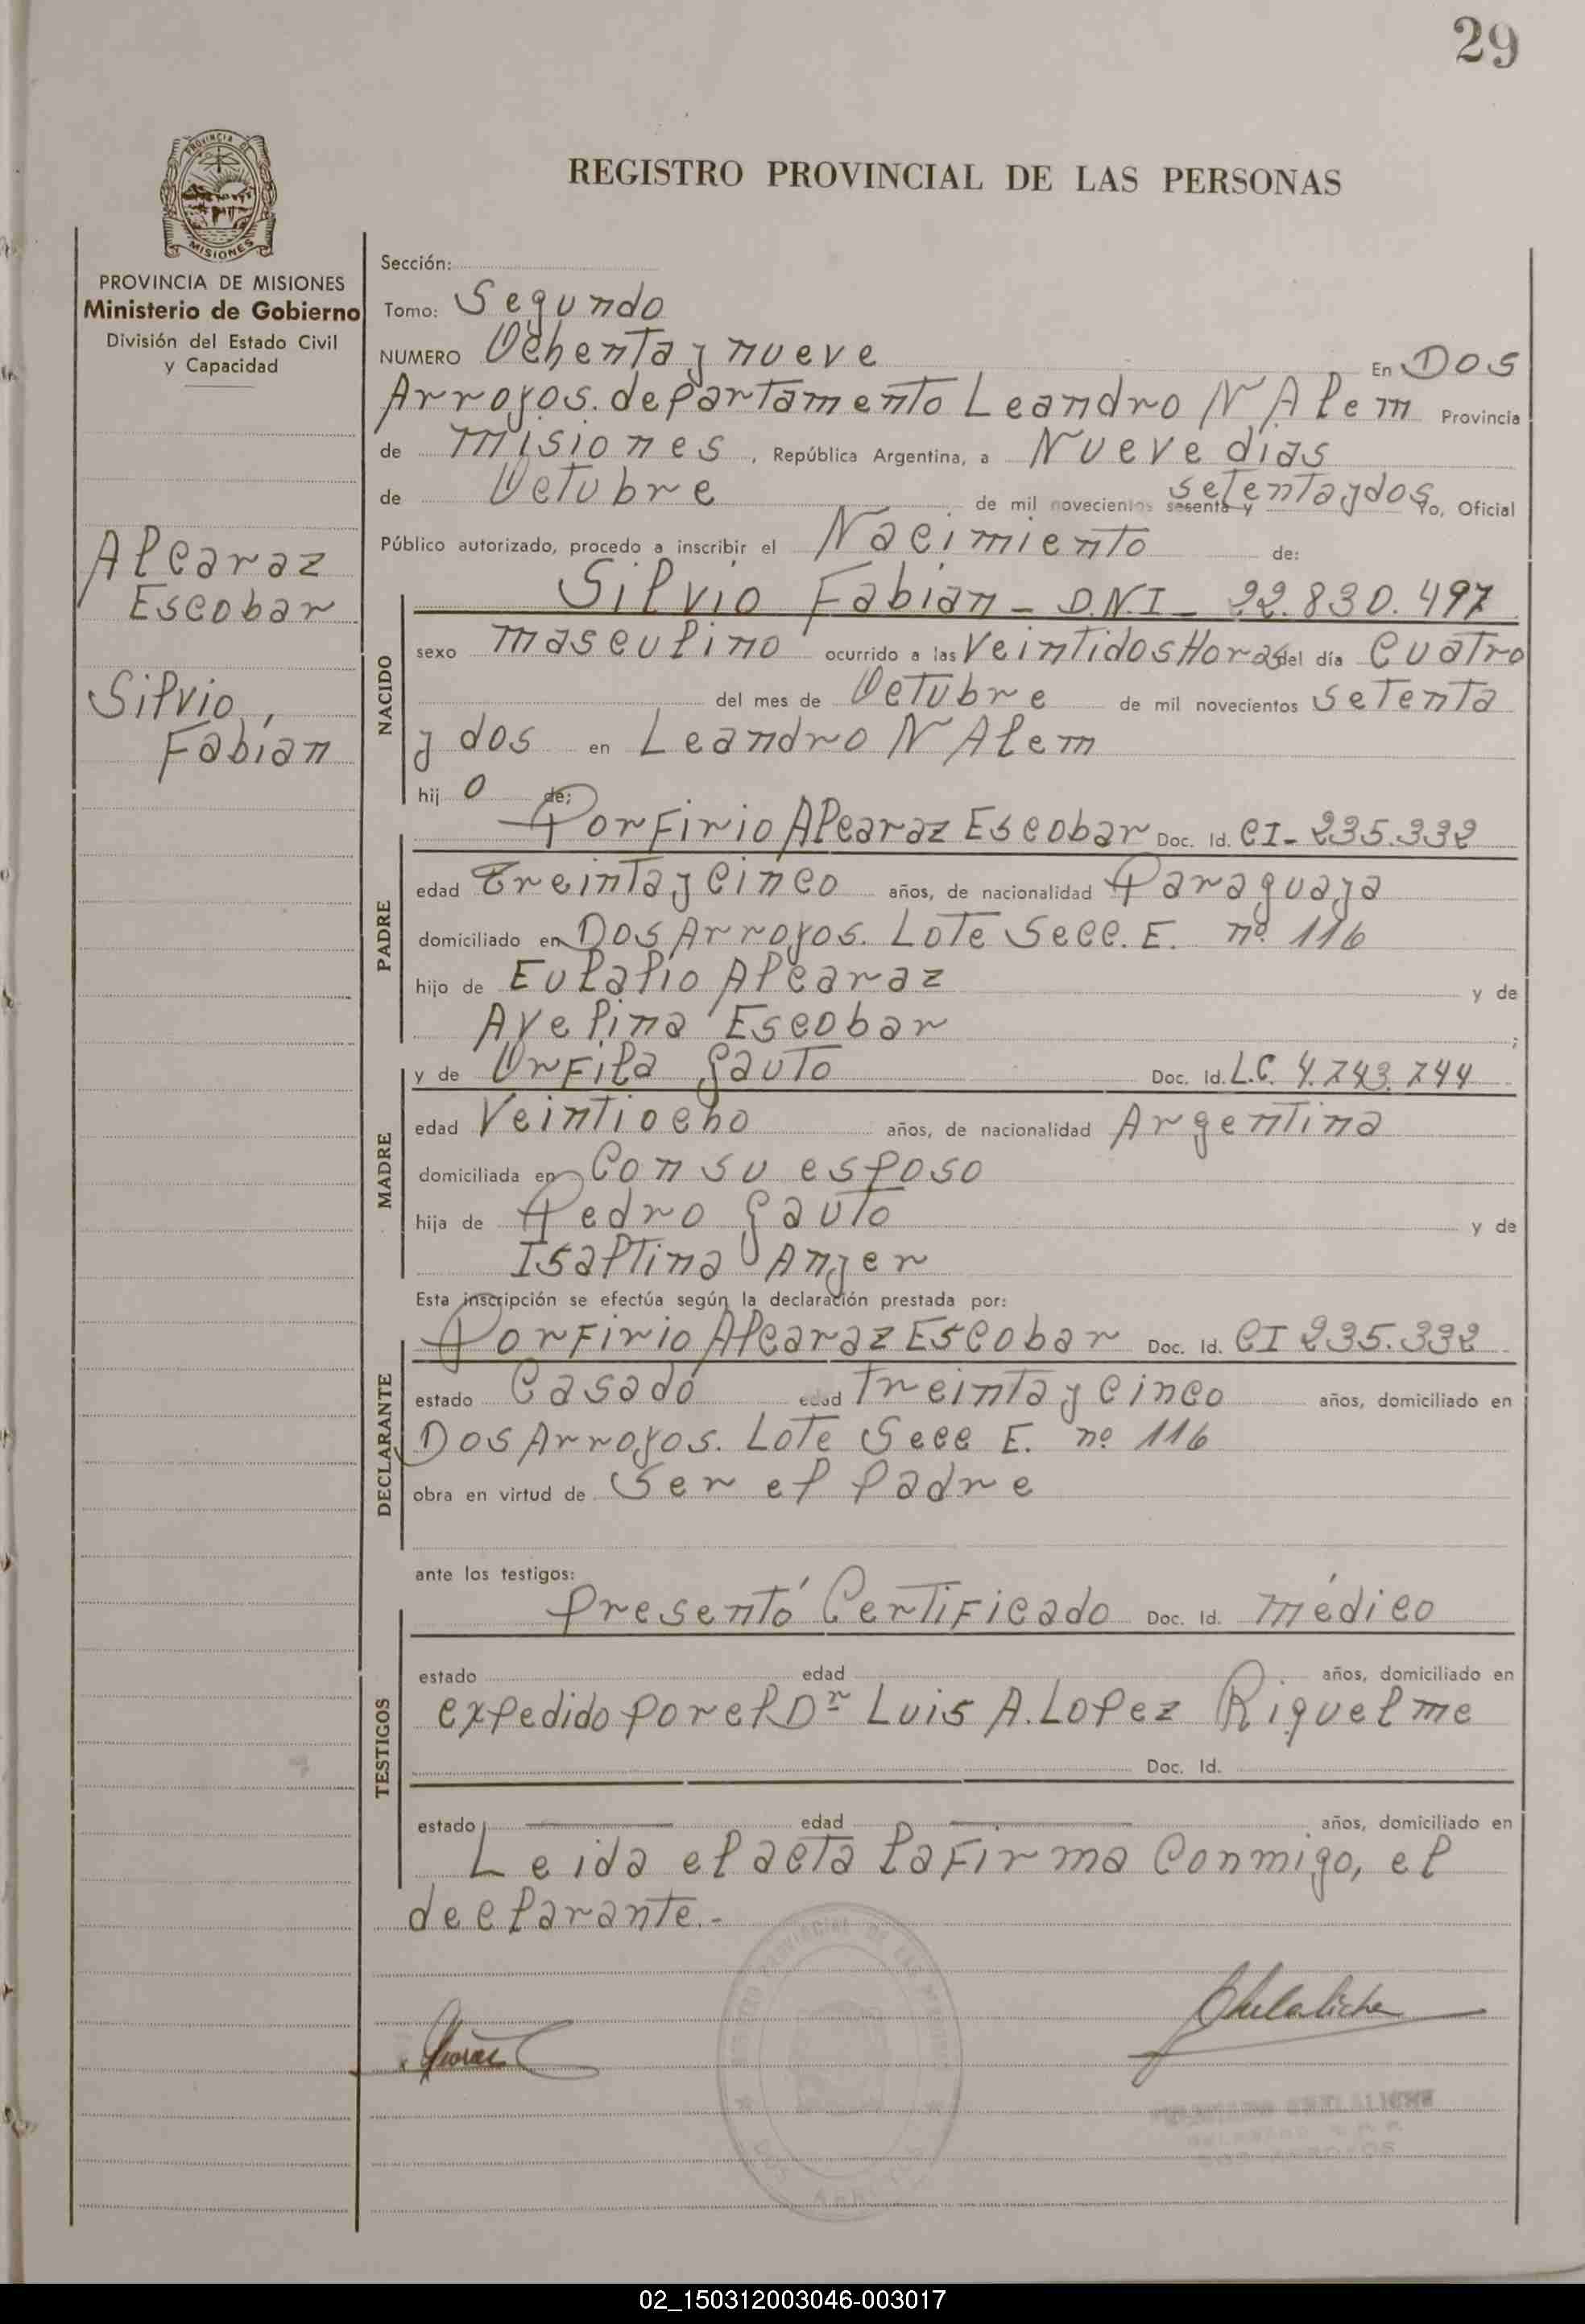 29
PROVINCIA DE
MISIONES
REGISTRO PROVINCIAL DE LAS PERSONAS
PROVINCIA DE MISIONES
Ministerio de Gobierno
División del Estado Civil
y Capacidad
Alcaraz
Escobar
Silvio,
Fabián
Sección:
Tomo: Segundo
NUMERO Ochenta y nueve En Dos
Arroyos. departamento Leandro N Alem Provincia
de Misiones, República Argentina, a Nueve días
de Octubre de mil novecientos sesenta y setenta y dos Yo, Oficial
Público autorizado, procedo a inscribir el Nacimiento de:
NACIDO
Silvio Fabian - D.N.I - 22.830.497
sexo masculino ocurrido a las Veintidos Horas del día Cuatro
del mes de Octubre de mil novecientos setenta
y dos en Leandro N Alem
hij o de;
PADRE
Porfirio Alcaraz Escobar Doc. Id. CI- 235.332
edad Treinta y Cinco años, de nacionalidad Paraguaya
domiciliado en Dos Arroyos. Lote Secc. E. nº 116
hijo de Eulalio Alcaraz y de
Avelina Escobar ;
MADRE
y de Orfila Gauto Doc. Id. L.C. 4.743.744
edad Veintiocho años, de nacionalidad Argentina
domiciliada en Con su esposo
hija de Pedro Gauto y de
Isaltina Anjer
Esta inscripción se efectúa según la declaración prestada por:
DECLARANTE
Porfirio Alcaraz Escobar Doc. Id. CI 235.332
estado Casado edad Treinta y Cinco años, domiciliado en
Dos Arroyos. Lote Secc E. nº 116
obra en virtud de Ser el padre
ante los testigos:
TESTIGOS
presentó Certificado Doc. Id. médico
estado edad años, domiciliado en
expedido por el Dr Luis A. Lopez Riquelme
Doc. Id.
estado edad años, domiciliado en
Leida el acta la Firma Conmigo, el
declarante.-
02_150312003046-003017